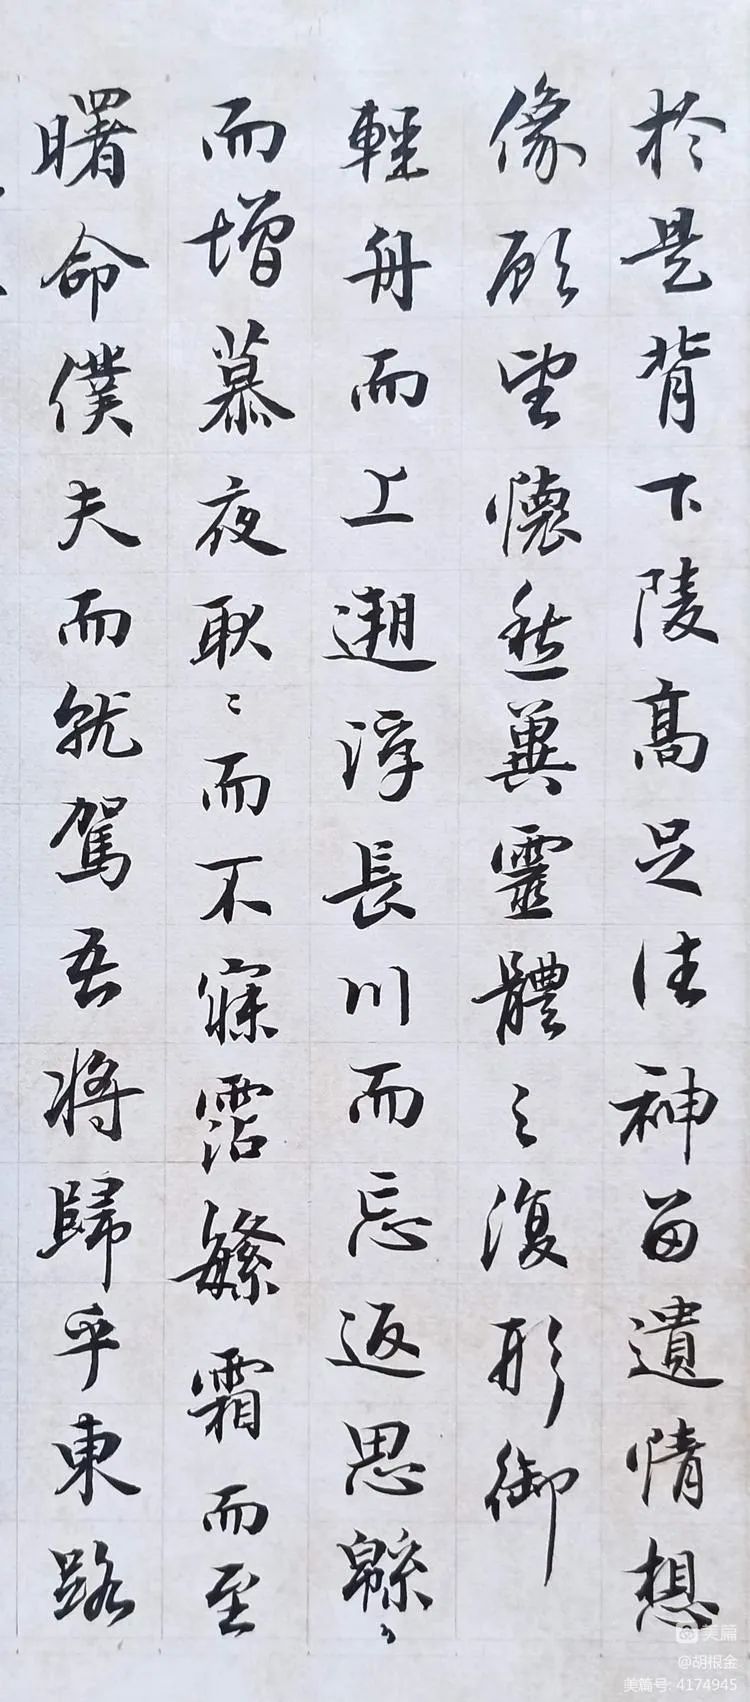 於是背下陵高足往神留遺情想
像顧望懷愁冀靈體之復形御
輕舟而上遡浮長川而忘返思緜〻
而增慕夜耿〻而不寐霑繁霜而至
曙命僕夫而就駕吾將歸乎東路
美篇
@胡根金
美篇号: 4174945